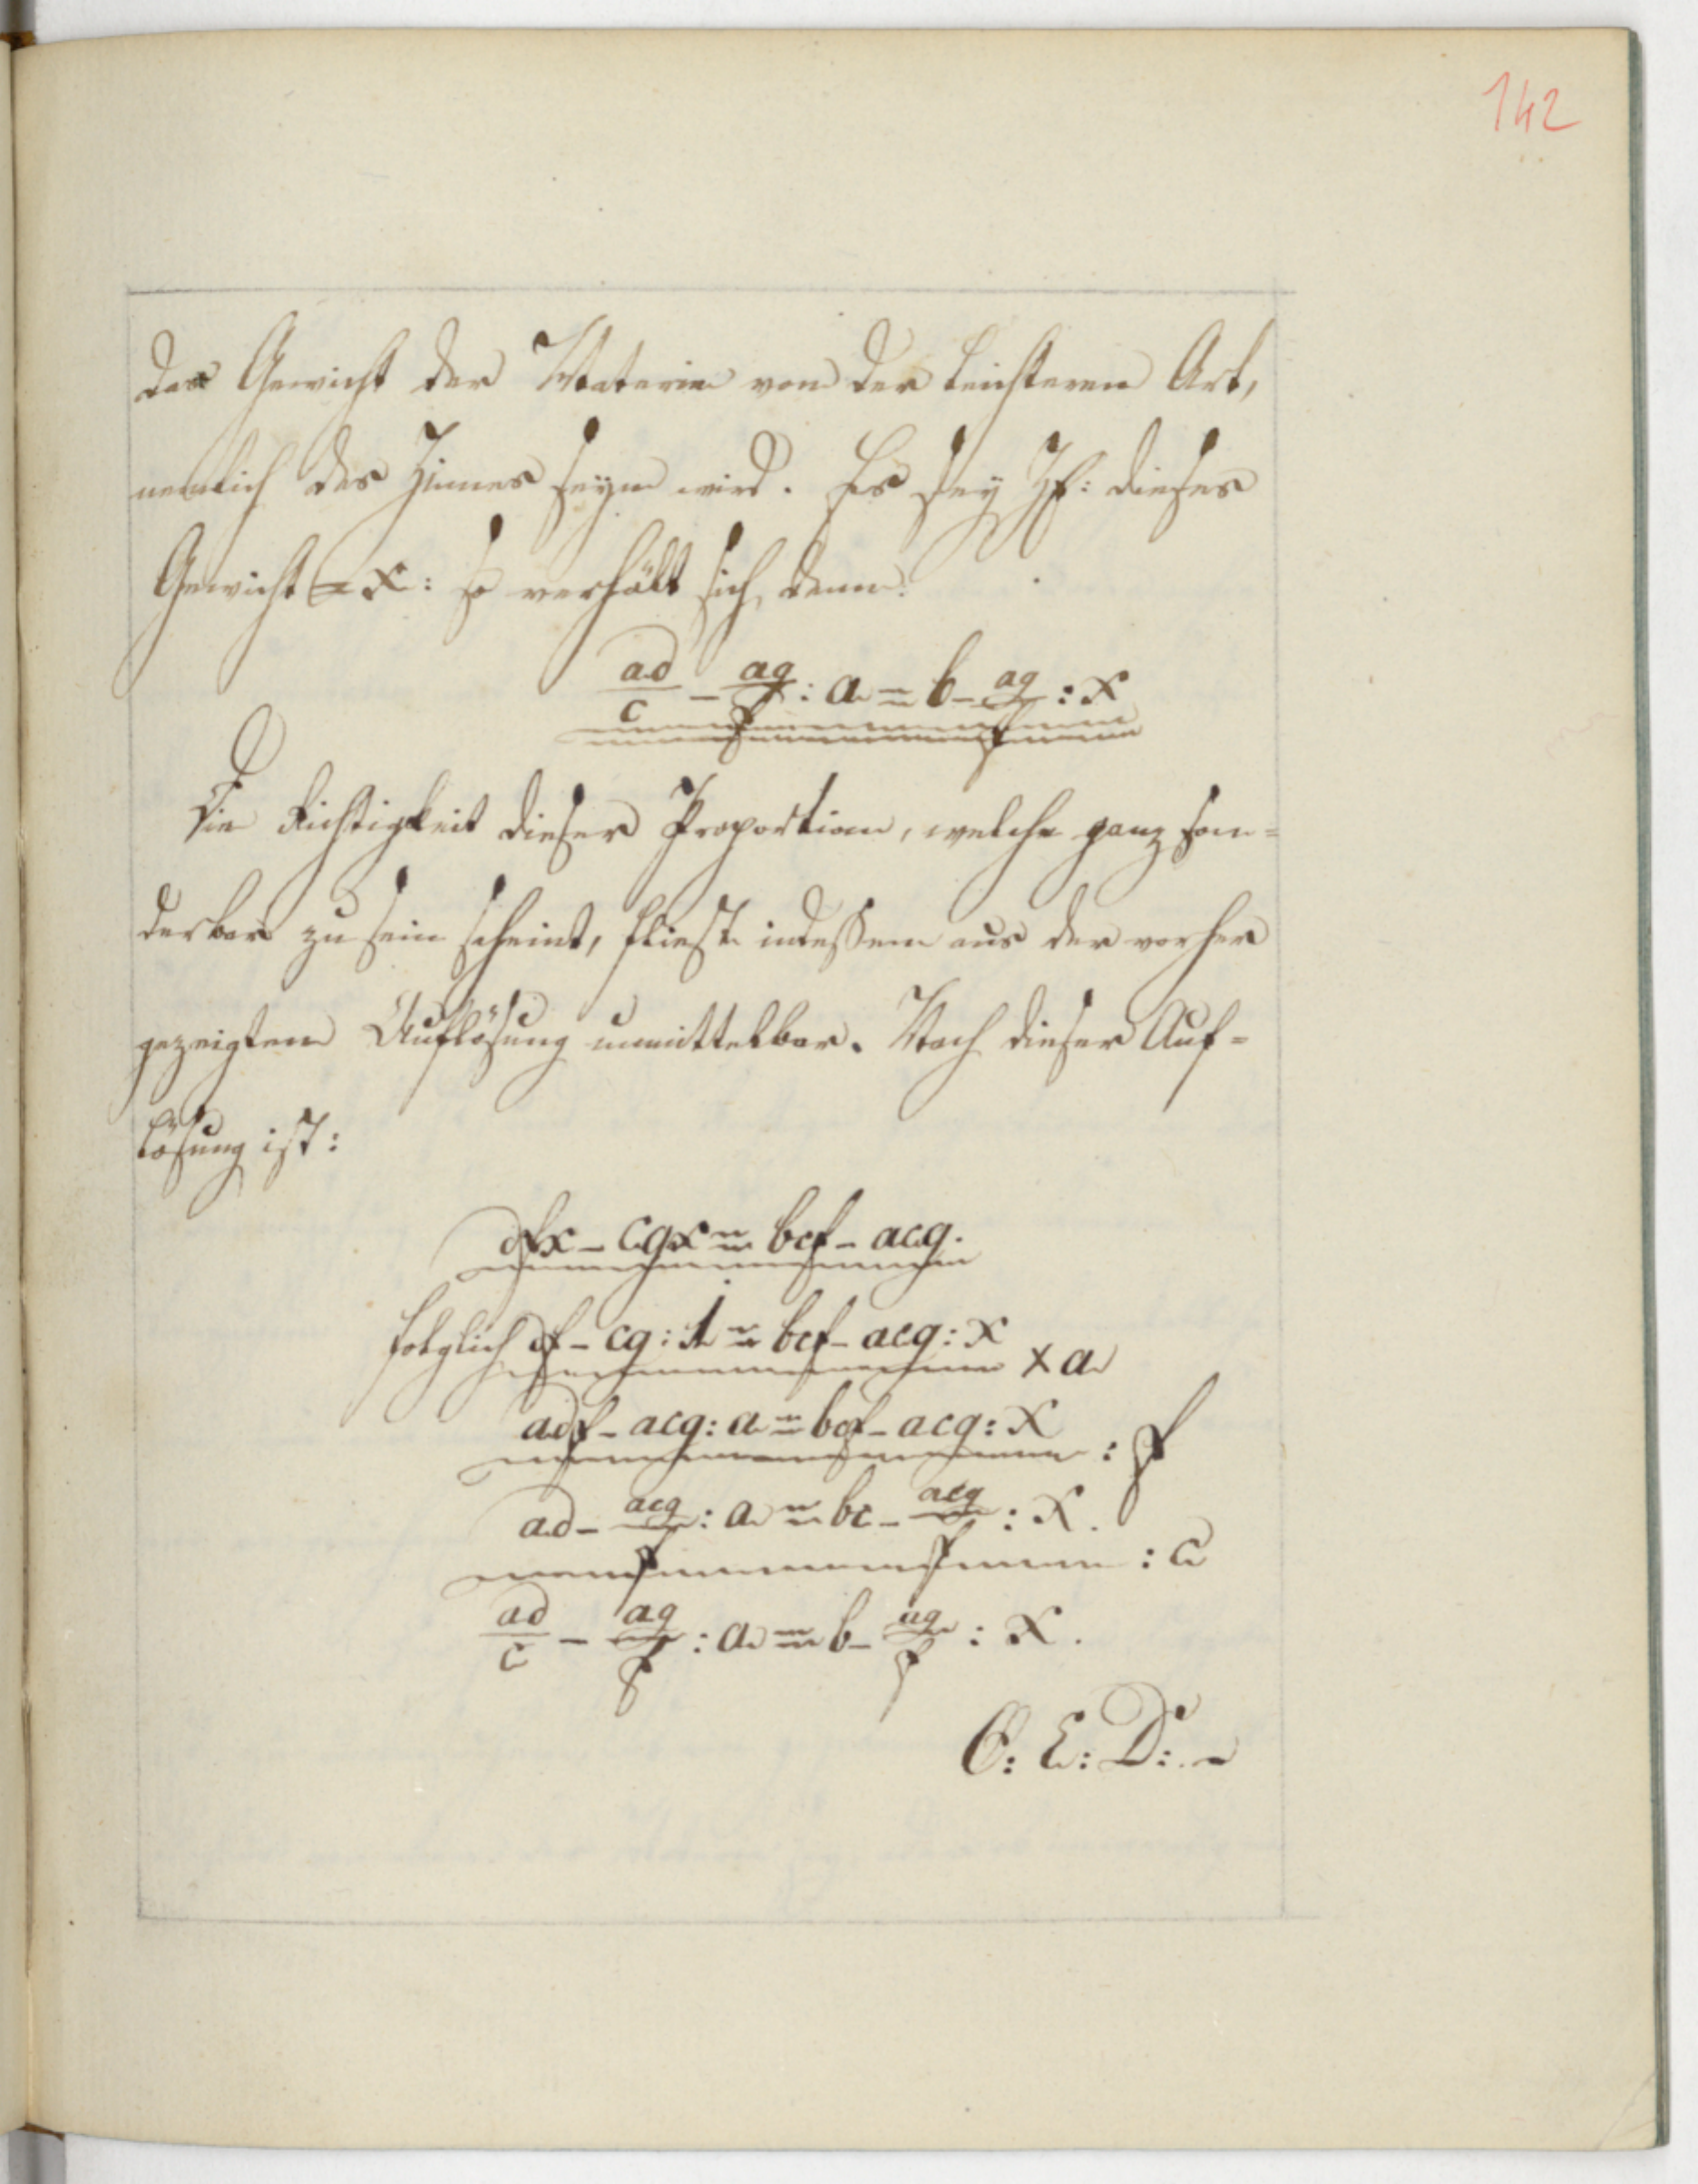 142
das Gewicht der Materie von der leichteren Art,
nemlich des Zinnes seyn wird. Es sey Zf: dieses
Gewicht = x: so verhält sich denn:
ad/c - ag/f : a = b - ag/f : x
Die Richtigkeit dieser Proportion, welche ganz son=
derbar zu sein scheint, fliest indessen aus der vorher
gezeigten Auflösung unmittelbar. Nach dieser Auf=
lösung ist:
dfx - cgx = bcf - acg.
folglich df - cg : 1 = bcf - acg : x
× a
adf - acg : a = bcf - acg : x
: f
ad - acg/f : a = bc - acg/f : x.
: c
ad/c - ag/f : a = b - ag/f : x.
Q: E: D:.